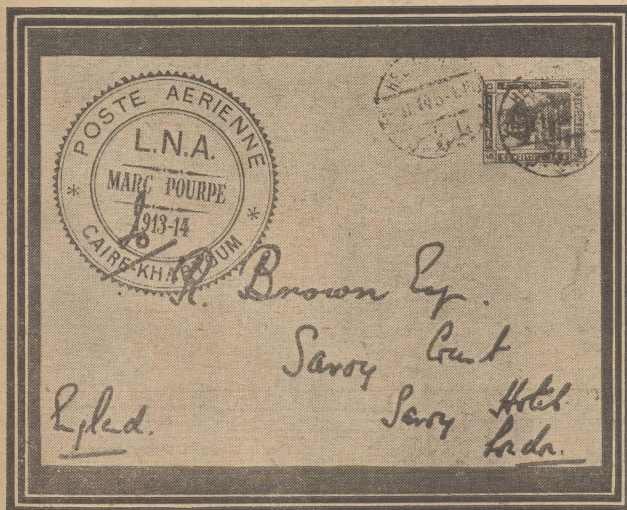 POSTE AERIENNE
L.N.A.
MARC POURPE
1913-14
CAIRE-KHARTOUM
R. Brown Esq.
Savoy Court
Savoy Hotel
London.
England.